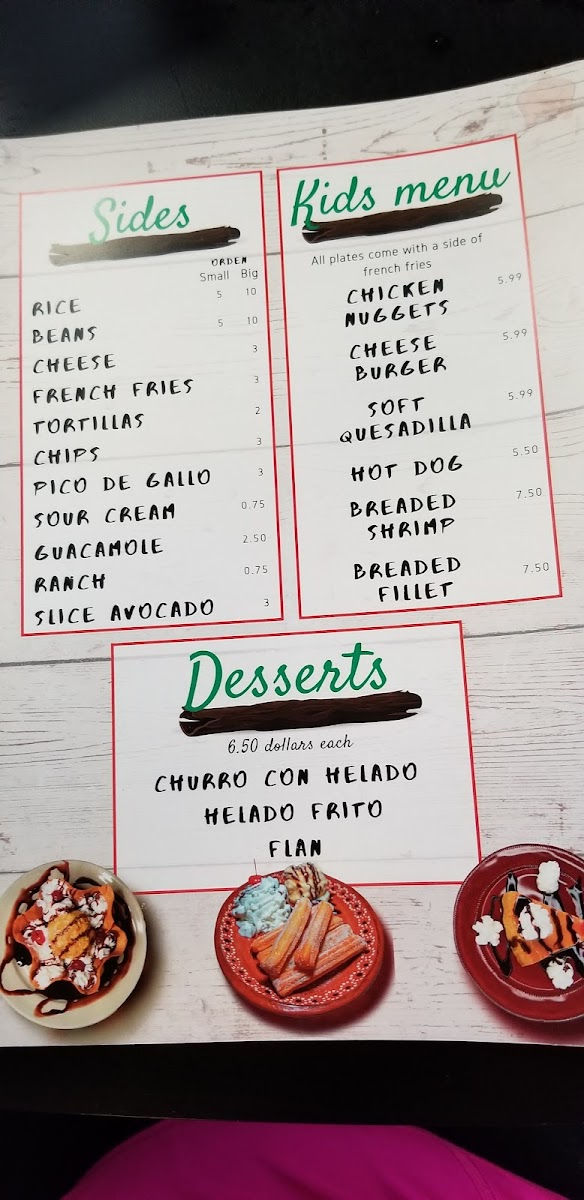 Sides
ORDEN
Small Big
RICE 5 10
BEANS 5 10
CHEESE 3
FRENCH FRIES 3
TORTILLAS 2
CHIPS 3
PICO DE GALLO 3
SOUR CREAM 0.75
GUACAMOLE 2.50
RANCH 0.75
SLICE AVOCADO 3
Kids menu
All plates come with a side of
french fries
CHICKEN 5.99
NUGGETS
CHEESE 5.99
BURGER
SOFT 5.99
QUESADILLA
HOT DOG 5.50
BREADED 7.50
SHRIMP
BREADED 7.50
FILLET
Desserts
6.50 dollars each
CHURRO CON HELADO
HELADO FRITO
FLAN